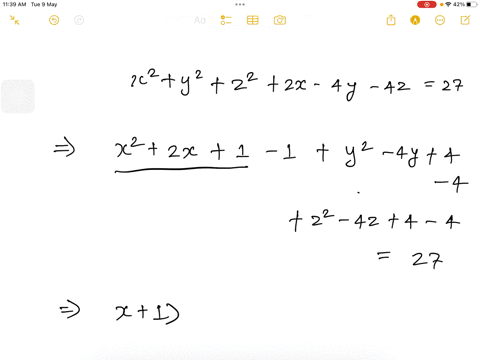 11:39 AM Tue 9 May
42%
Aa
x² + y² + z² + 2x - 4y - 4z = 27
⇒ x² + 2x + 1 - 1 + y² - 4y + 4
- 4
+ z² - 4z + 4 - 4
= 27
⇒ x + 1)